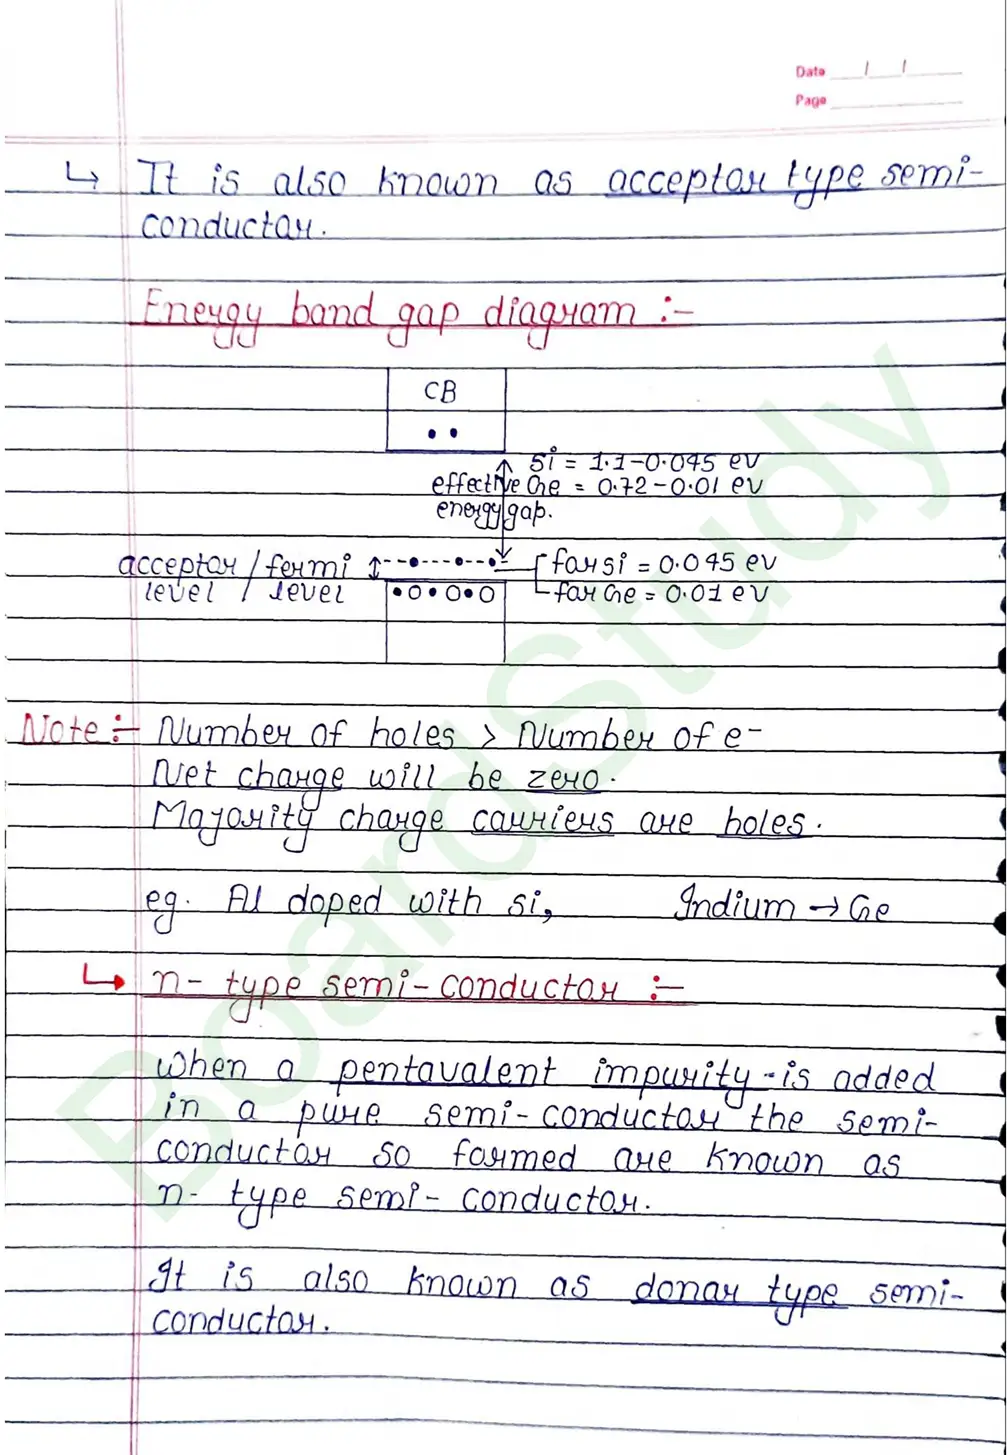 Date / /
Page
↳ It is also known as acceptor type semi-
conductor.
Energy band gap diagram :-
CB
Si = 1.1-0.045 ev
effective Ge = 0.72-0.01 ev
energy gap.
acceptor / fermi
level / level
for si = 0.045 ev
for Ge = 0.01 ev
Note :- Number of holes > Number of e-
Net charge will be zero.
Majority charge carriers are holes.
eg. Al doped with si, Indium → Ge
↳ n- type semi-conductor :-
When a pentavalent impurity - is added
in a pure semi-conductor the semi-
conductor so formed are known as
n- type semi- conductor.
It is also known as donar type semi-
conductor.
BoardStudy